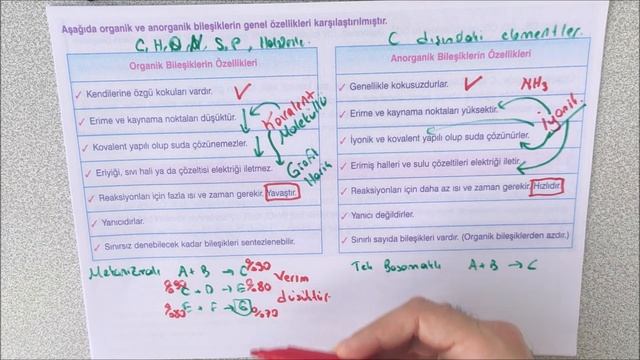 Aşağıda organik ve anorganik bileşiklerin genel özellikleri karşılaştırılmıştır.
C, H, O, N, S, P, Halojenler.
C dışındaki elementler.
Organik Bileşiklerin Özellikleri
✓ Kendilerine özgü kokuları vardır. ✓
✓ Erime ve kaynama noktaları düşüktür.
✓ Kovalent yapılı olup suda çözünemezler.
✓ Eriyiği, sıvı hali ya da çözeltisi elektriği iletmez.
✓ Reaksiyonları için fazla ısı ve zaman gerekir. Yavaştır.
✓ Yanıcıdırlar.
✓ Sınırsız denebilecek kadar bileşikleri sentezlenebilir.
Kovalent
Moleküllü
Grafit
Hariç
Anorganik Bileşiklerin Özellikleri
✓ Genellikle kokusuzdurlar. ✓ NH3
✓ Erime ve kaynama noktaları yüksektir.
✓ İyonik ve kovalent yapılı olup suda çözünürler.
✓ Erimiş halleri ve sulu çözeltileri elektriği iletir.
✓ Reaksiyonları için daha az ısı ve zaman gerekir. Hızlıdır.
✓ Yanıcı değildirler.
✓ Sınırlı sayıda bileşikleri vardır. (Organik bileşiklerden azdır.)
İyonik.
Mekanizmalı A + B → C %90
%90 C + D → E %80
%80 E + F → G %70
Verim
düşüktür.
Tek Basamaklı A + B → C